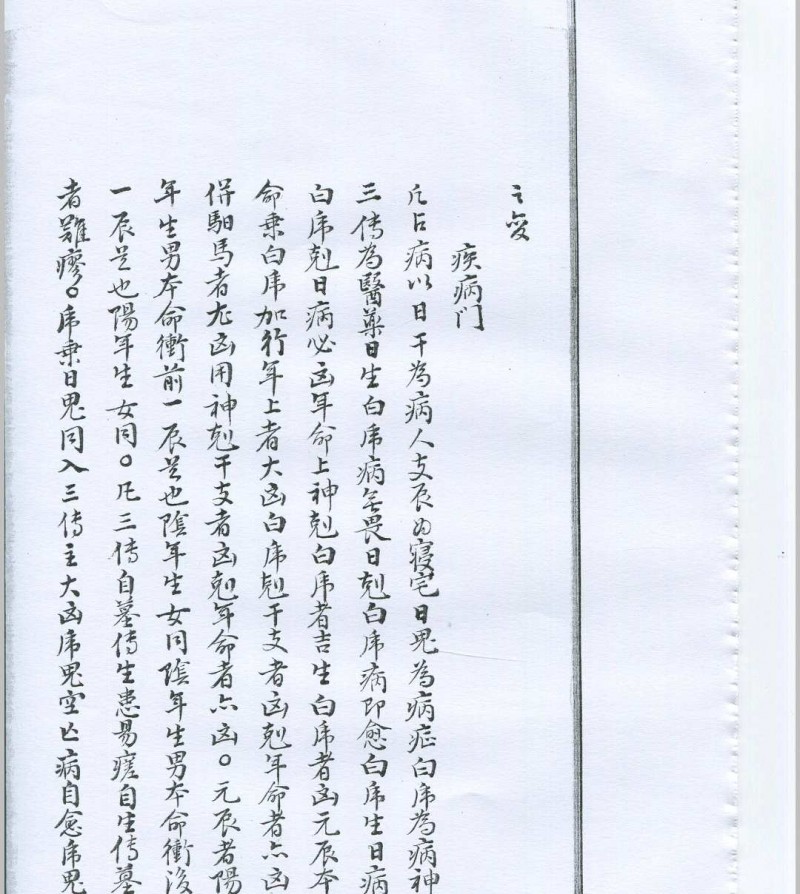 之變
疾病門
凡占病以日干為病人支辰為寢宅日鬼為病症白虎為病神
三傳為醫藥日生白虎病無畏日剋白虎病即愈白虎生日病
白虎剋日病必凶年命上神剋白虎者吉生白虎者凶元辰本
命乘白虎加行年上者大凶白虎剋干支者凶剋年命者亦凶
併馹馬者尤凶用神剋干支者凶剋年命者亦凶。元辰者陽
年生男本命衝前一辰是也陰年生女同陰年生男本命衝後
一辰是也陽年生女同。凡三傳自墓傳生患易瘥自生傳墓
者難瘳。虎乘日鬼同入三傳主大凶虎鬼空亡病自愈虎鬼